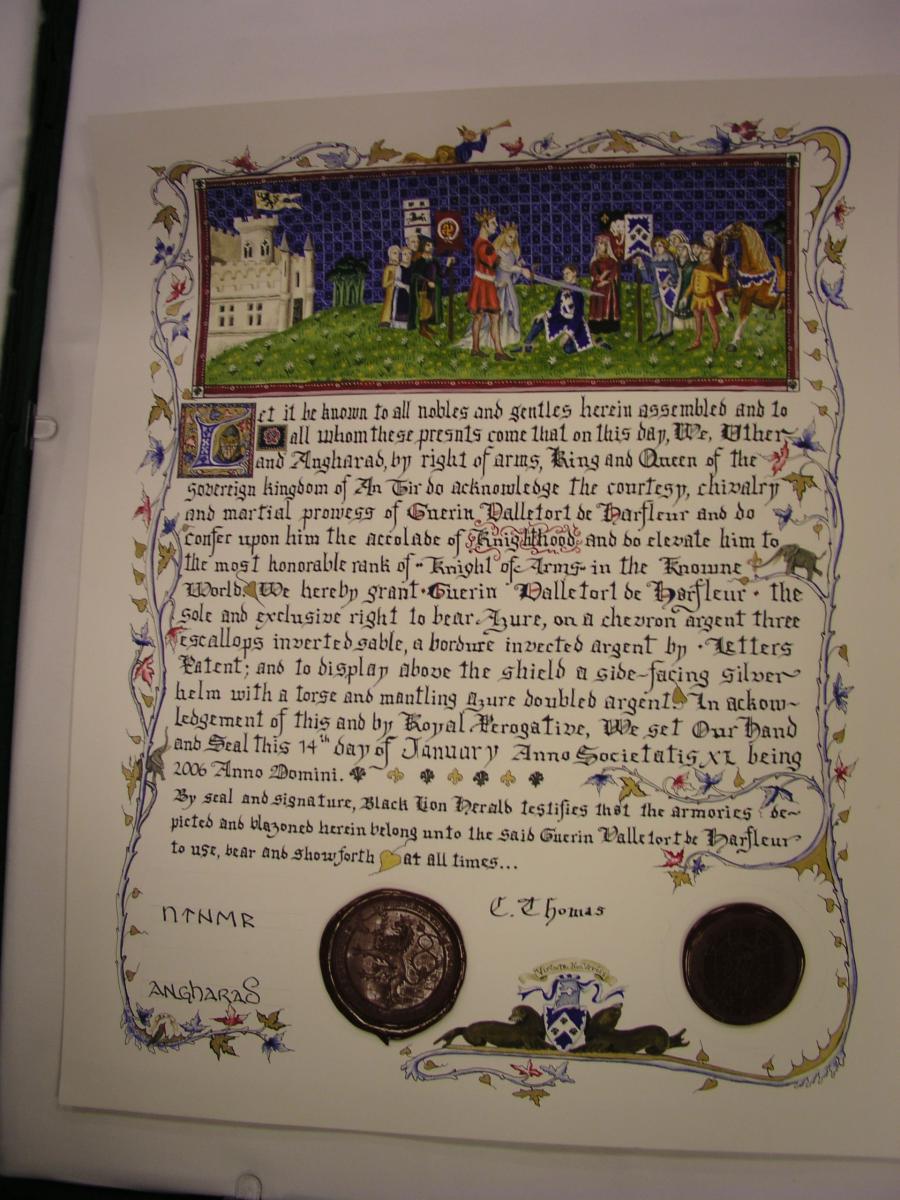 Let it be known to all nobles and gentles herein assembled and to
all whom these presnts come that on this day, We, Uther
and Angharad, by right of arms, King and Queen of the
sovereign kingdom of An Tir do acknowledge the courtesy, chivalry
and martial prowess of Guerin Valletort de Harfleur and do
confer upon him the accolade of Knighthood and do elevate him to
the most honorable rank of · Knight of Arms · in the Knowne
World. We hereby grant · Guerin Valletort de Harfleur · the
sole and exclusive right to bear Azure, on a chevron argent three
escallops inverted sable, a bordure invected argent by · Letters
Patent; and to display above the shield a side-facing silver
helm with a torse and mantling azure doubled argent. In acknow-
ledgement of this and by Royal Perogative, We set Our Hand
and Seal this 14th day of January Anno Societatis XL being
2006 Anno Domini.
By seal and signature, Black Lion Herald testifies that the armories de-
picted and blazoned herein belong unto the said Guerin Valletort de Harfleur
to use, bear and show forth at all times...
C. Thomas
ANGHARAD